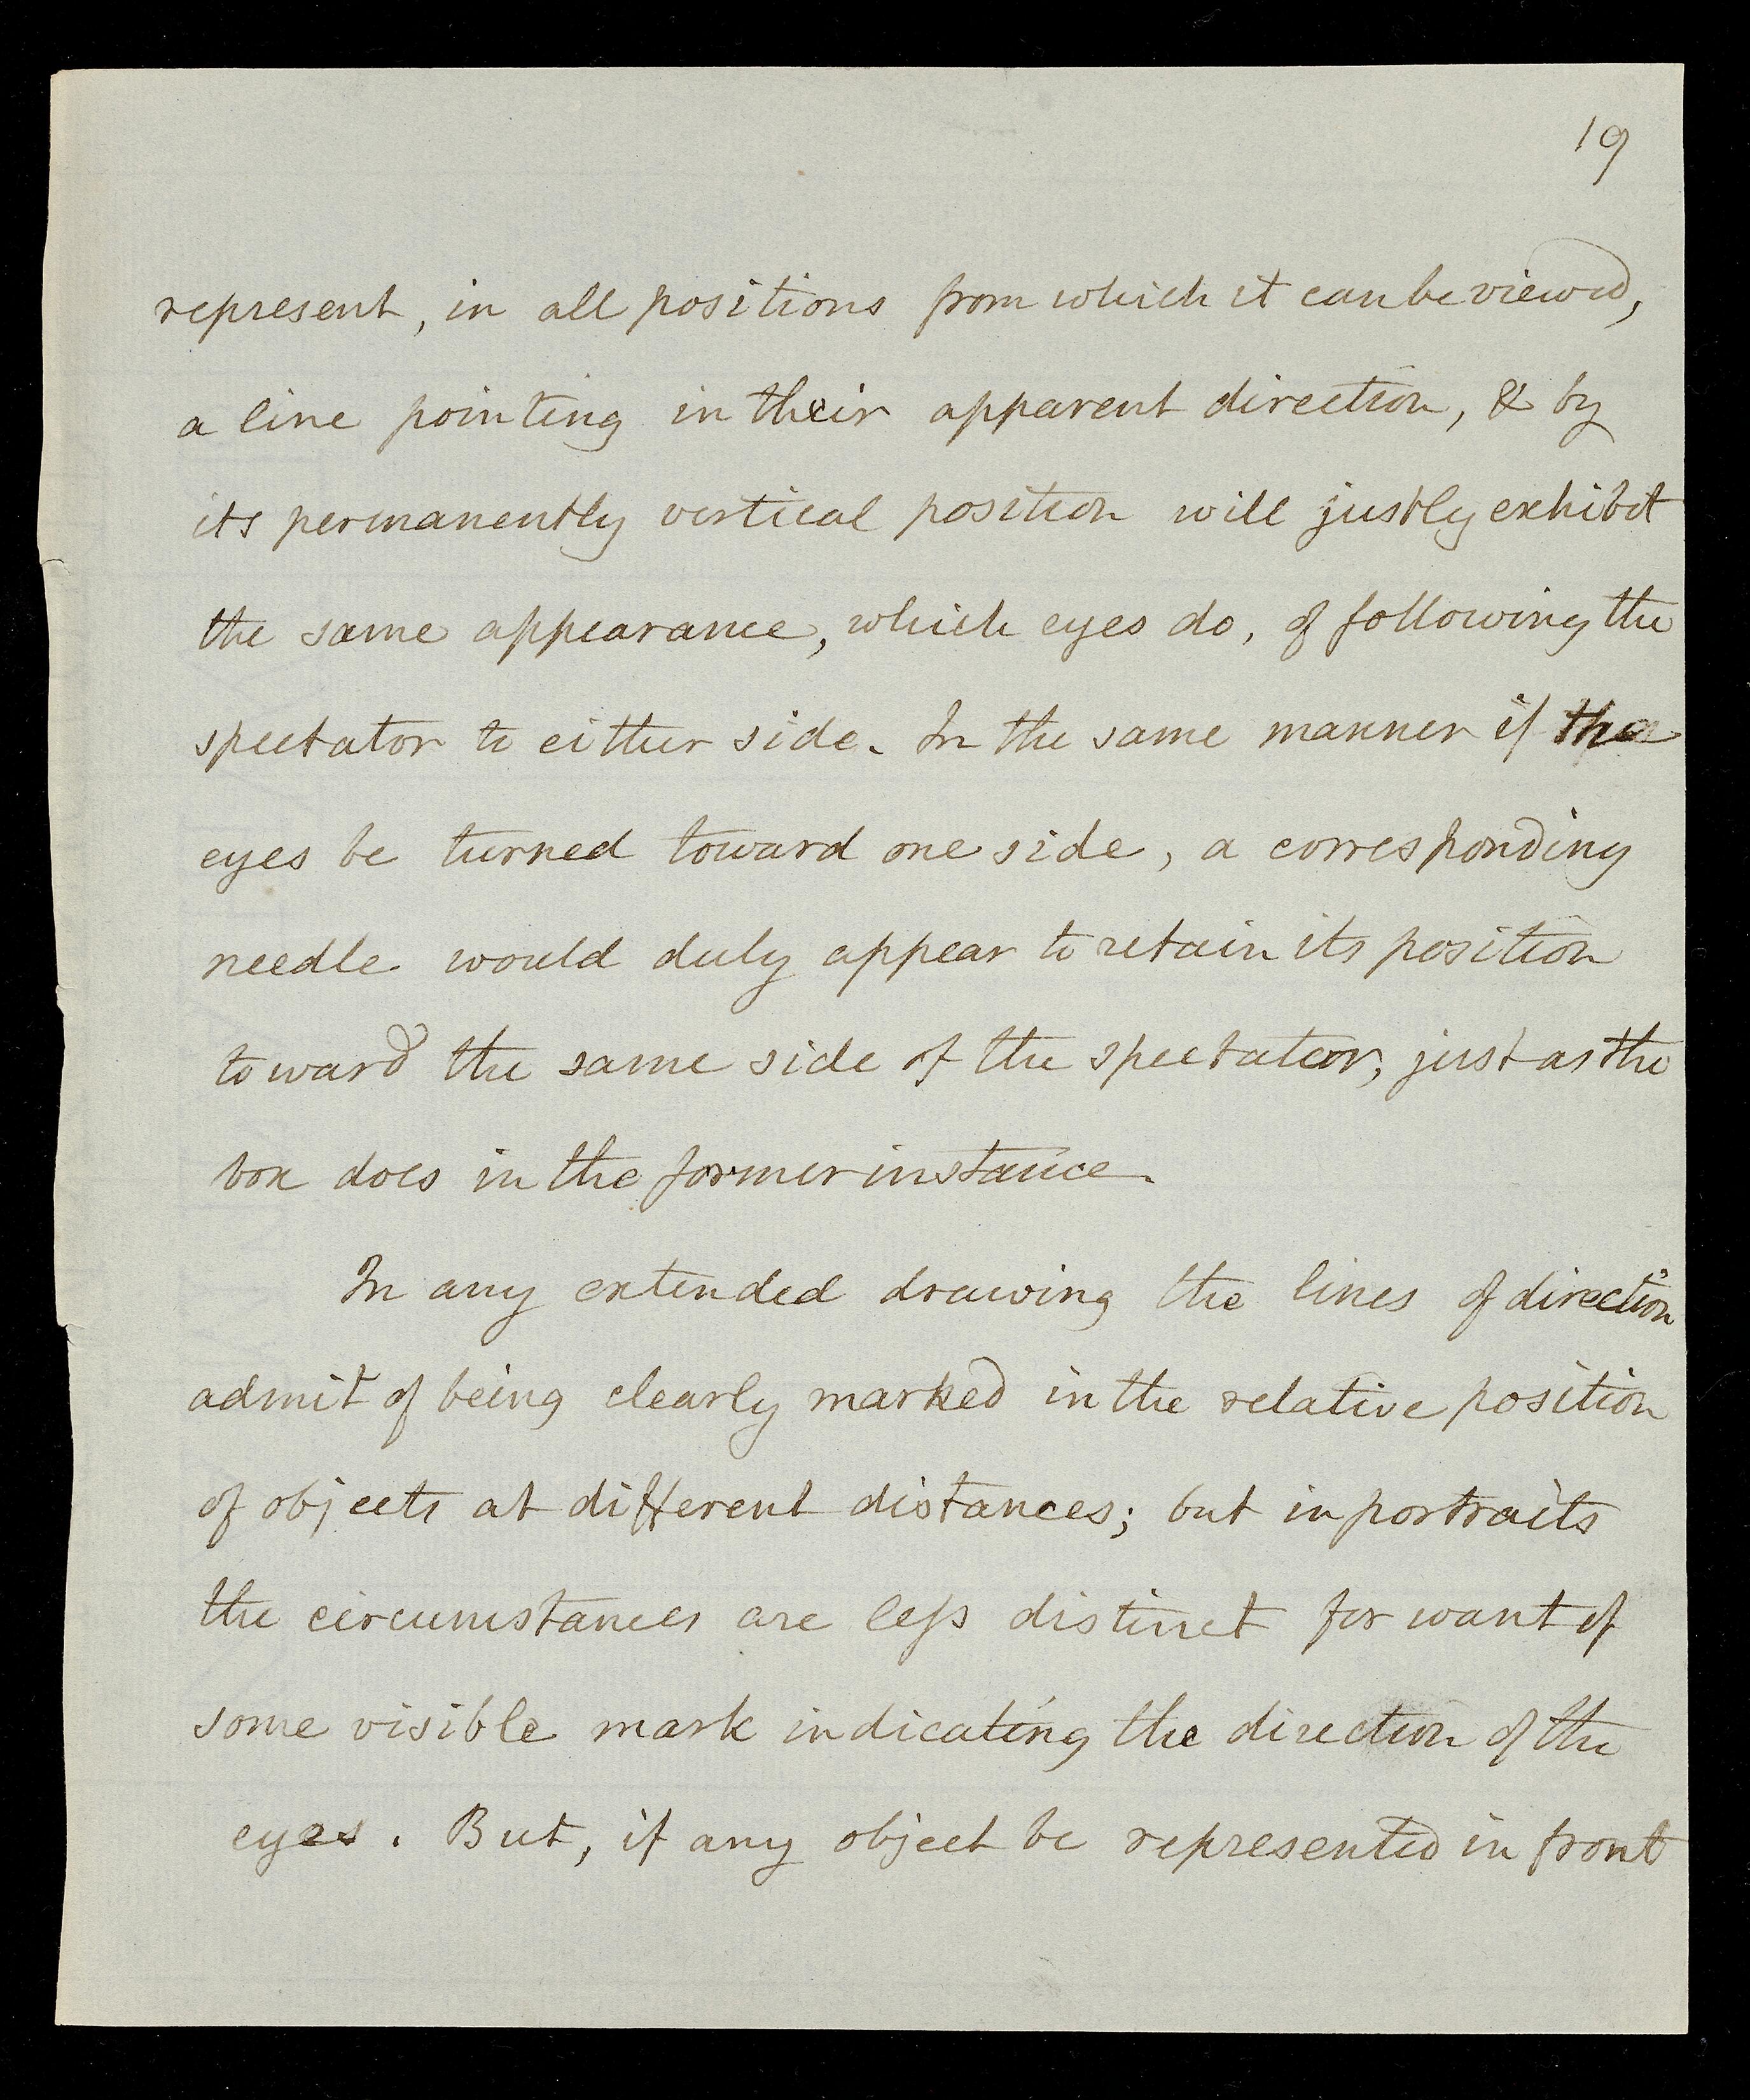 19
represent, in all positions from which it can be viewed,
a line pointing in their apparent direction, & by
its permanently vertical position will justly exhibit
the same appearance, which eyes do, of following the
spectator to either side. In the same manner if the
eyes be turned toward one side, a corresponding
needle would duly appear to retain its position
toward the same side of the spectator, just as the
box does in the former instance.
In any extended drawing the lines of direction
admit of being clearly marked in the relative position
of objects at different distances; but in portraits
the circumstances are leſs distinct for want of
some visible mark indicating the direction of the
eyes. But, if any object be represented in front